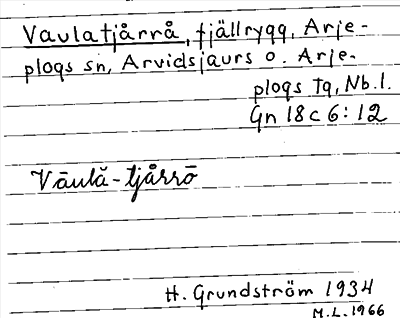 Vaulatjårrå, fjällrygg, Arje-
plogs sn, Arvidsjaurs o. Arje-
plogs tg, Nb.l.
Gn 18 c 6:12
Vāulă-tjårrō
H. Grundström 1934
M.L. 1966